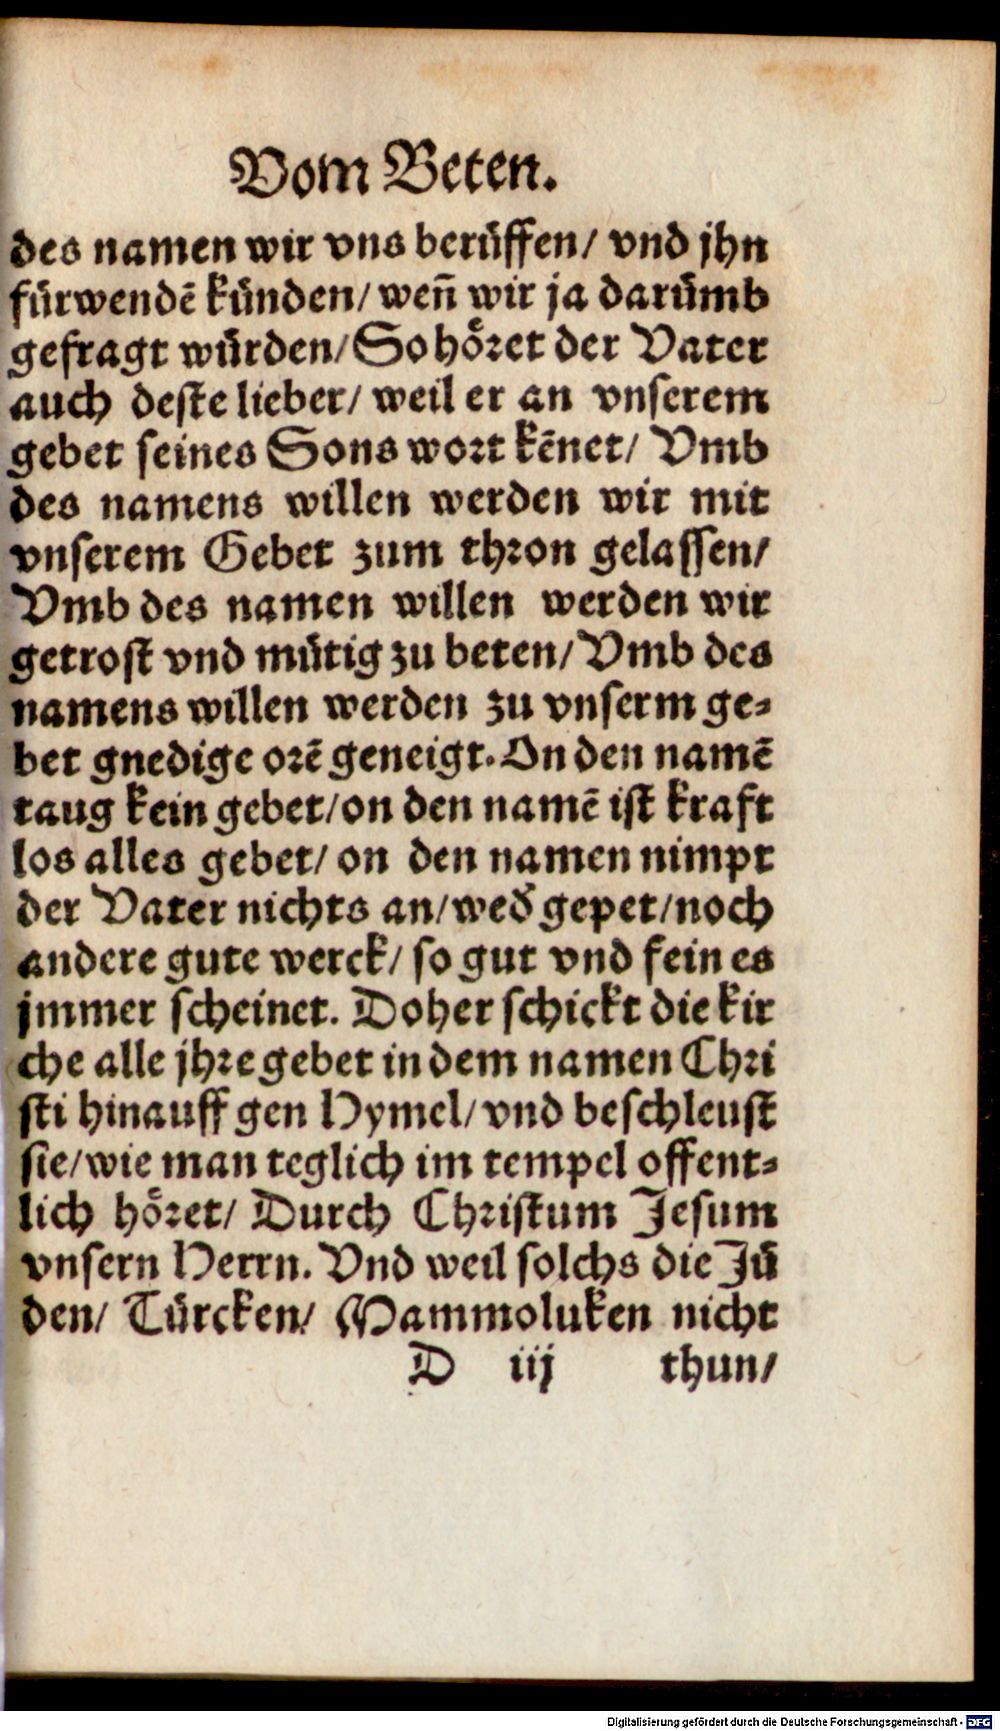 Vom Beten.
des namen wir vns berůffen/ vnd jhn
fürwendē künden/ weñ wir ja darůmb
gefragt würden/ So hoͤret der Vater
auch deste lieber/ weil er an vnserem
gebet seines Sons wort kēnet/ Vmb
des namens willen werden wir mit
vnserem Gebet zum thron gelassen/
Vmb des namen willen werden wir
getrost vnd můtig zu beten/ Vmb des
namens willen werden zu vnserm ge-
bet gnedige orē geneigt. On den namē
taug kein gebet/ on den namē ist kraft
los alles gebet/ on den namen nimpt
der Vater nichts an/ wed̛ gepet/ noch
andere gute werck/ so gut vnd fein es
jmmer scheinet. Doher schickt die kir
che alle jhre gebet in dem namen Chri
sti hinauff gen Hymel/ vnd beschleust
sie/ wie man teglich im tempel offent-
lich hoͤret/ Durch Christum Jesum
vnsern Herrn. Vnd weil solchs die Jů
den/ Türcken/ Mammoluken nicht
D iij thun/
Digitalisierung gefördert durch die Deutsche Forschungsgemeinschaft - DFG